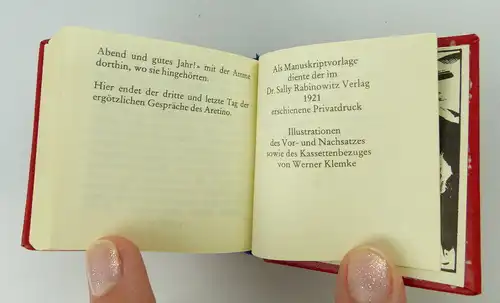 Abend und gutes Jahr!« mit der Amme
dorthin, wo sie hingehörten.
Hier endet der dritte und letzte Tag der
ergötzlichen Gespräche des Aretino.
Als Manuskriptvorlage
diente der im
Dr. Sally Rabinowitz Verlag
1921
erschienene Privatdruck
Illustrationen
des Vor- und Nachsatzes
sowie des Kassettenbezuges
von Werner Klemke